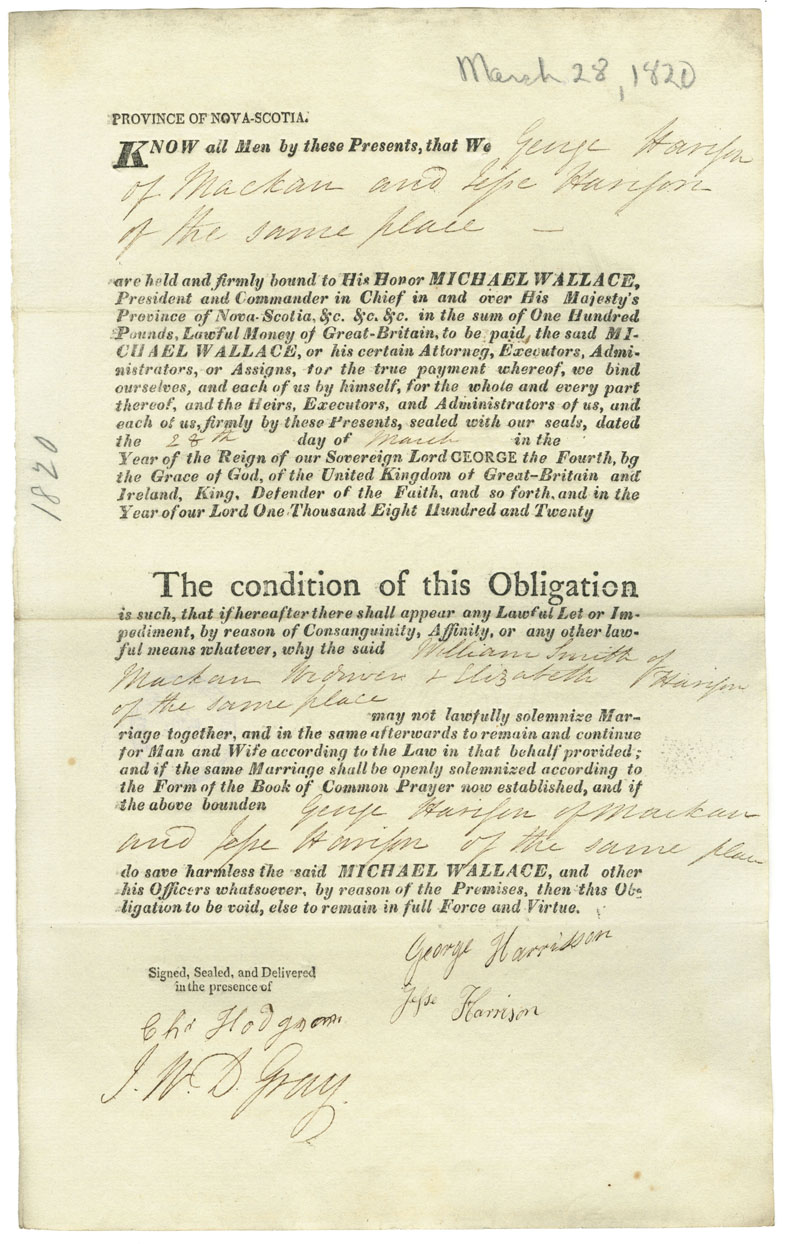 March 28, 1820
PROVINCE OF NOVA-SCOTIA.
KNOW all Men by these Presents, that We George Harison
of Mackan and Jesse Harison
of the same place —
are held and firmly bound to His Honor MICHAEL WALLACE,
President and Commander in Chief in and over His Majesty's
Province of Nova-Scotia, &c. &c. &c. in the sum of One Hundred
Pounds, Lawful Money of Great-Britain, to be paid, the said MI-
CHAEL WALLACE, or his certain Attorney, Executors, Admi-
nistrators, or Assigns, for the true payment whereof, we bind
ourselves, and each of us by himself, for the whole and every part
thereof, and the Heirs, Executors, and Administrators of us, and
each of us, firmly by these Presents, sealed with our seals, dated
the 28th day of March in the
Year of the Reign of our Sovereign Lord GEORGE the Fourth, by
the Grace of God, of the United Kingdom of Great-Britain and
Ireland, King, Defender of the Faith, and so forth, and in the
Year of our Lord One Thousand Eight Hundred and Twenty
1820
The condition of this Obligation
is such, that if hereafter there shall appear any Lawful Let or Im-
pediment, by reason of Consanguinity, Affinity, or any other law-
ful means whatever, why the said William Smith of
Mackan Widower & Elizabeth Harison
of the same place
may not lawfully solemnize Mar-
riage together, and in the same afterwards to remain and continue
for Man and Wife according to the Law in that behalf provided;
and if the same Marriage shall be openly solemnized according to
the Form of the Book of Common Prayer now established, and if
the above bounden George Harison of Mackan
and Jesse Harison of the same place
do save harmless the said MICHAEL WALLACE, and other
his Officers whatsoever, by reason of the Premises, then this Ob-
ligation to be void, else to remain in full Force and Virtue.
George Harrisson
Jesse Harrison
Signed, Sealed, and Delivered
in the presence of
Chr Hodgson
J. W. D. Gray.